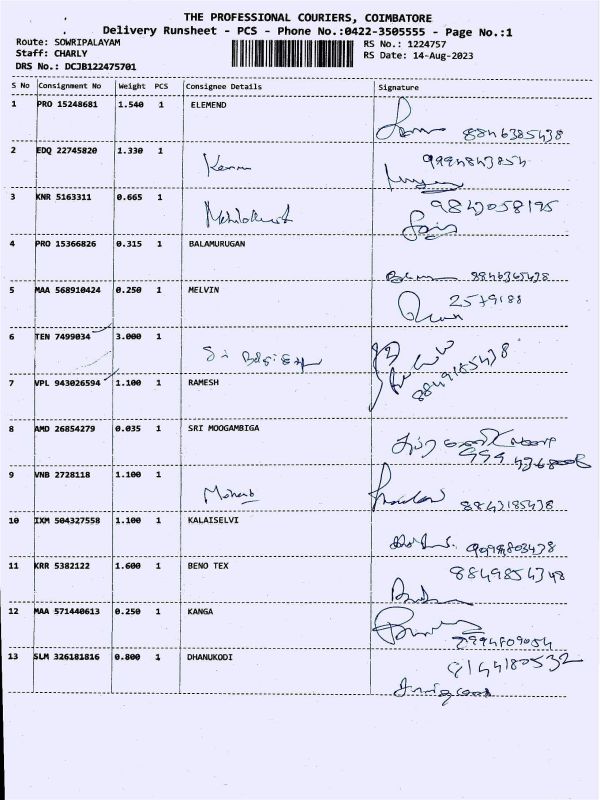 THE PROFESSIONAL COURIERS, COIMBATORE
Delivery Runsheet - PCS - Phone No.:0422-3505555 - Page No.:1
Route: SOWRIPALAYAM
RS No.: 1224757
Staff: CHARLY
RS Date: 14-Aug-2023
DRS No.: DCJB122475701
S No Consignment No Weight PCS Consignee Details Signature
1 PRO 15248681 1.540 1 ELEMEND
8846385438
2 EDQ 22745820 1.330 1
9994843854
3 KNR 5163311 0.665 1
9843058195
4 PRO 15366826 0.315 1 BALAMURUGAN
5 MAA 568910424 0.250 1 MELVIN
2579188
6 TEN 7499034 3.000 1
7 VPL 943026594 1.100 1 RAMESH
8849185438
8 AMD 26854279 0.035 1 SRI MOOGAMBIGA
9 VNB 2728118 1.100 1
8843185438
10 IXM 504327558 1.100 1 KALAISELVI
11 KRR 5382122 1.600 1 BENO TEX
8849854348
12 MAA 571440613 0.250 1 KANGA
13 SLM 326181816 0.800 1 DHANUKODI
8144180532